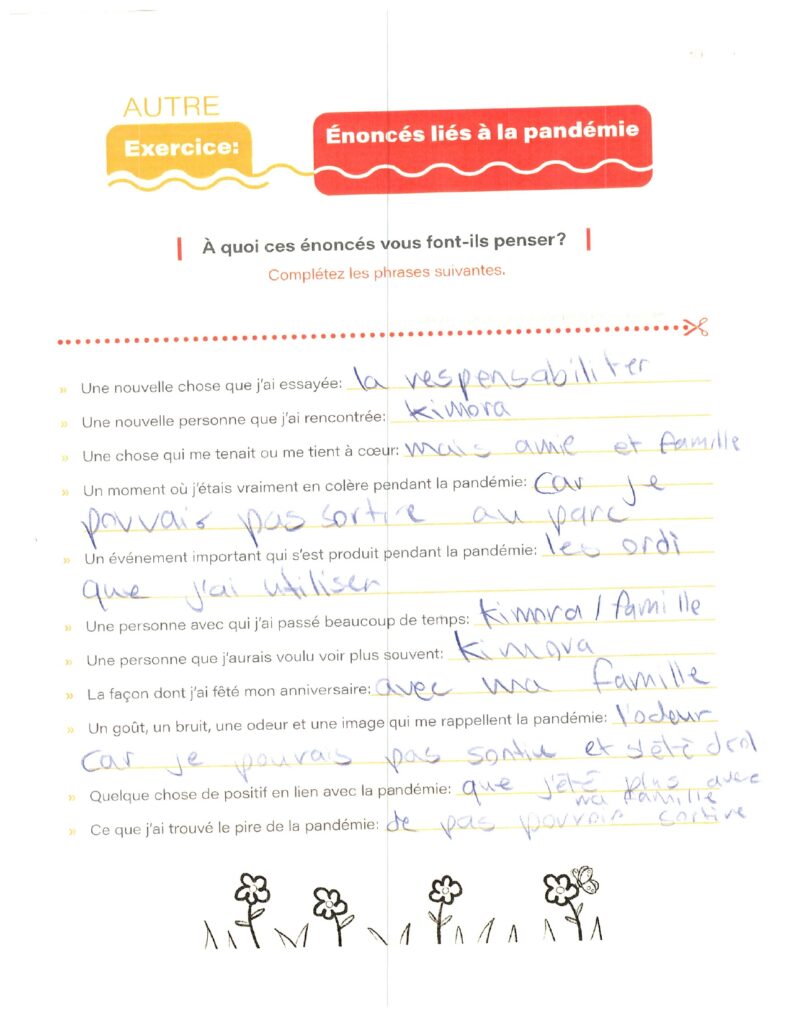 AUTRE
Exercice:
Énoncés liés à la pandémie
À quoi ces énoncés vous font-ils penser?
Complétez les phrases suivantes.
» Une nouvelle chose que j'ai essayée: la respensabiliter
» Une nouvelle personne que j'ai rencontrée: kimora
» Une chose qui me tenait ou me tient à cœur: mais amie et famille
» Un moment où j'étais vraiment en colère pendant la pandémie: Car je
pouvais pas sortire au parc
» Un événement important qui s'est produit pendant la pandémie: les ordi
que j'ai utiliser
» Une personne avec qui j'ai passé beaucoup de temps: kimora / famille
» Une personne que j'aurais voulu voir plus souvent: kimora
» La façon dont j'ai fêté mon anniversaire: avec ma famille
» Un goût, un bruit, une odeur et une image qui me rappellent la pandémie: l'odeur
Car je pouvais pas sortire et s'été drol
» Quelque chose de positif en lien avec la pandémie: que j'été plus avec
ma famille
» Ce que j'ai trouvé le pire de la pandémie: de pas pouvoir sortire